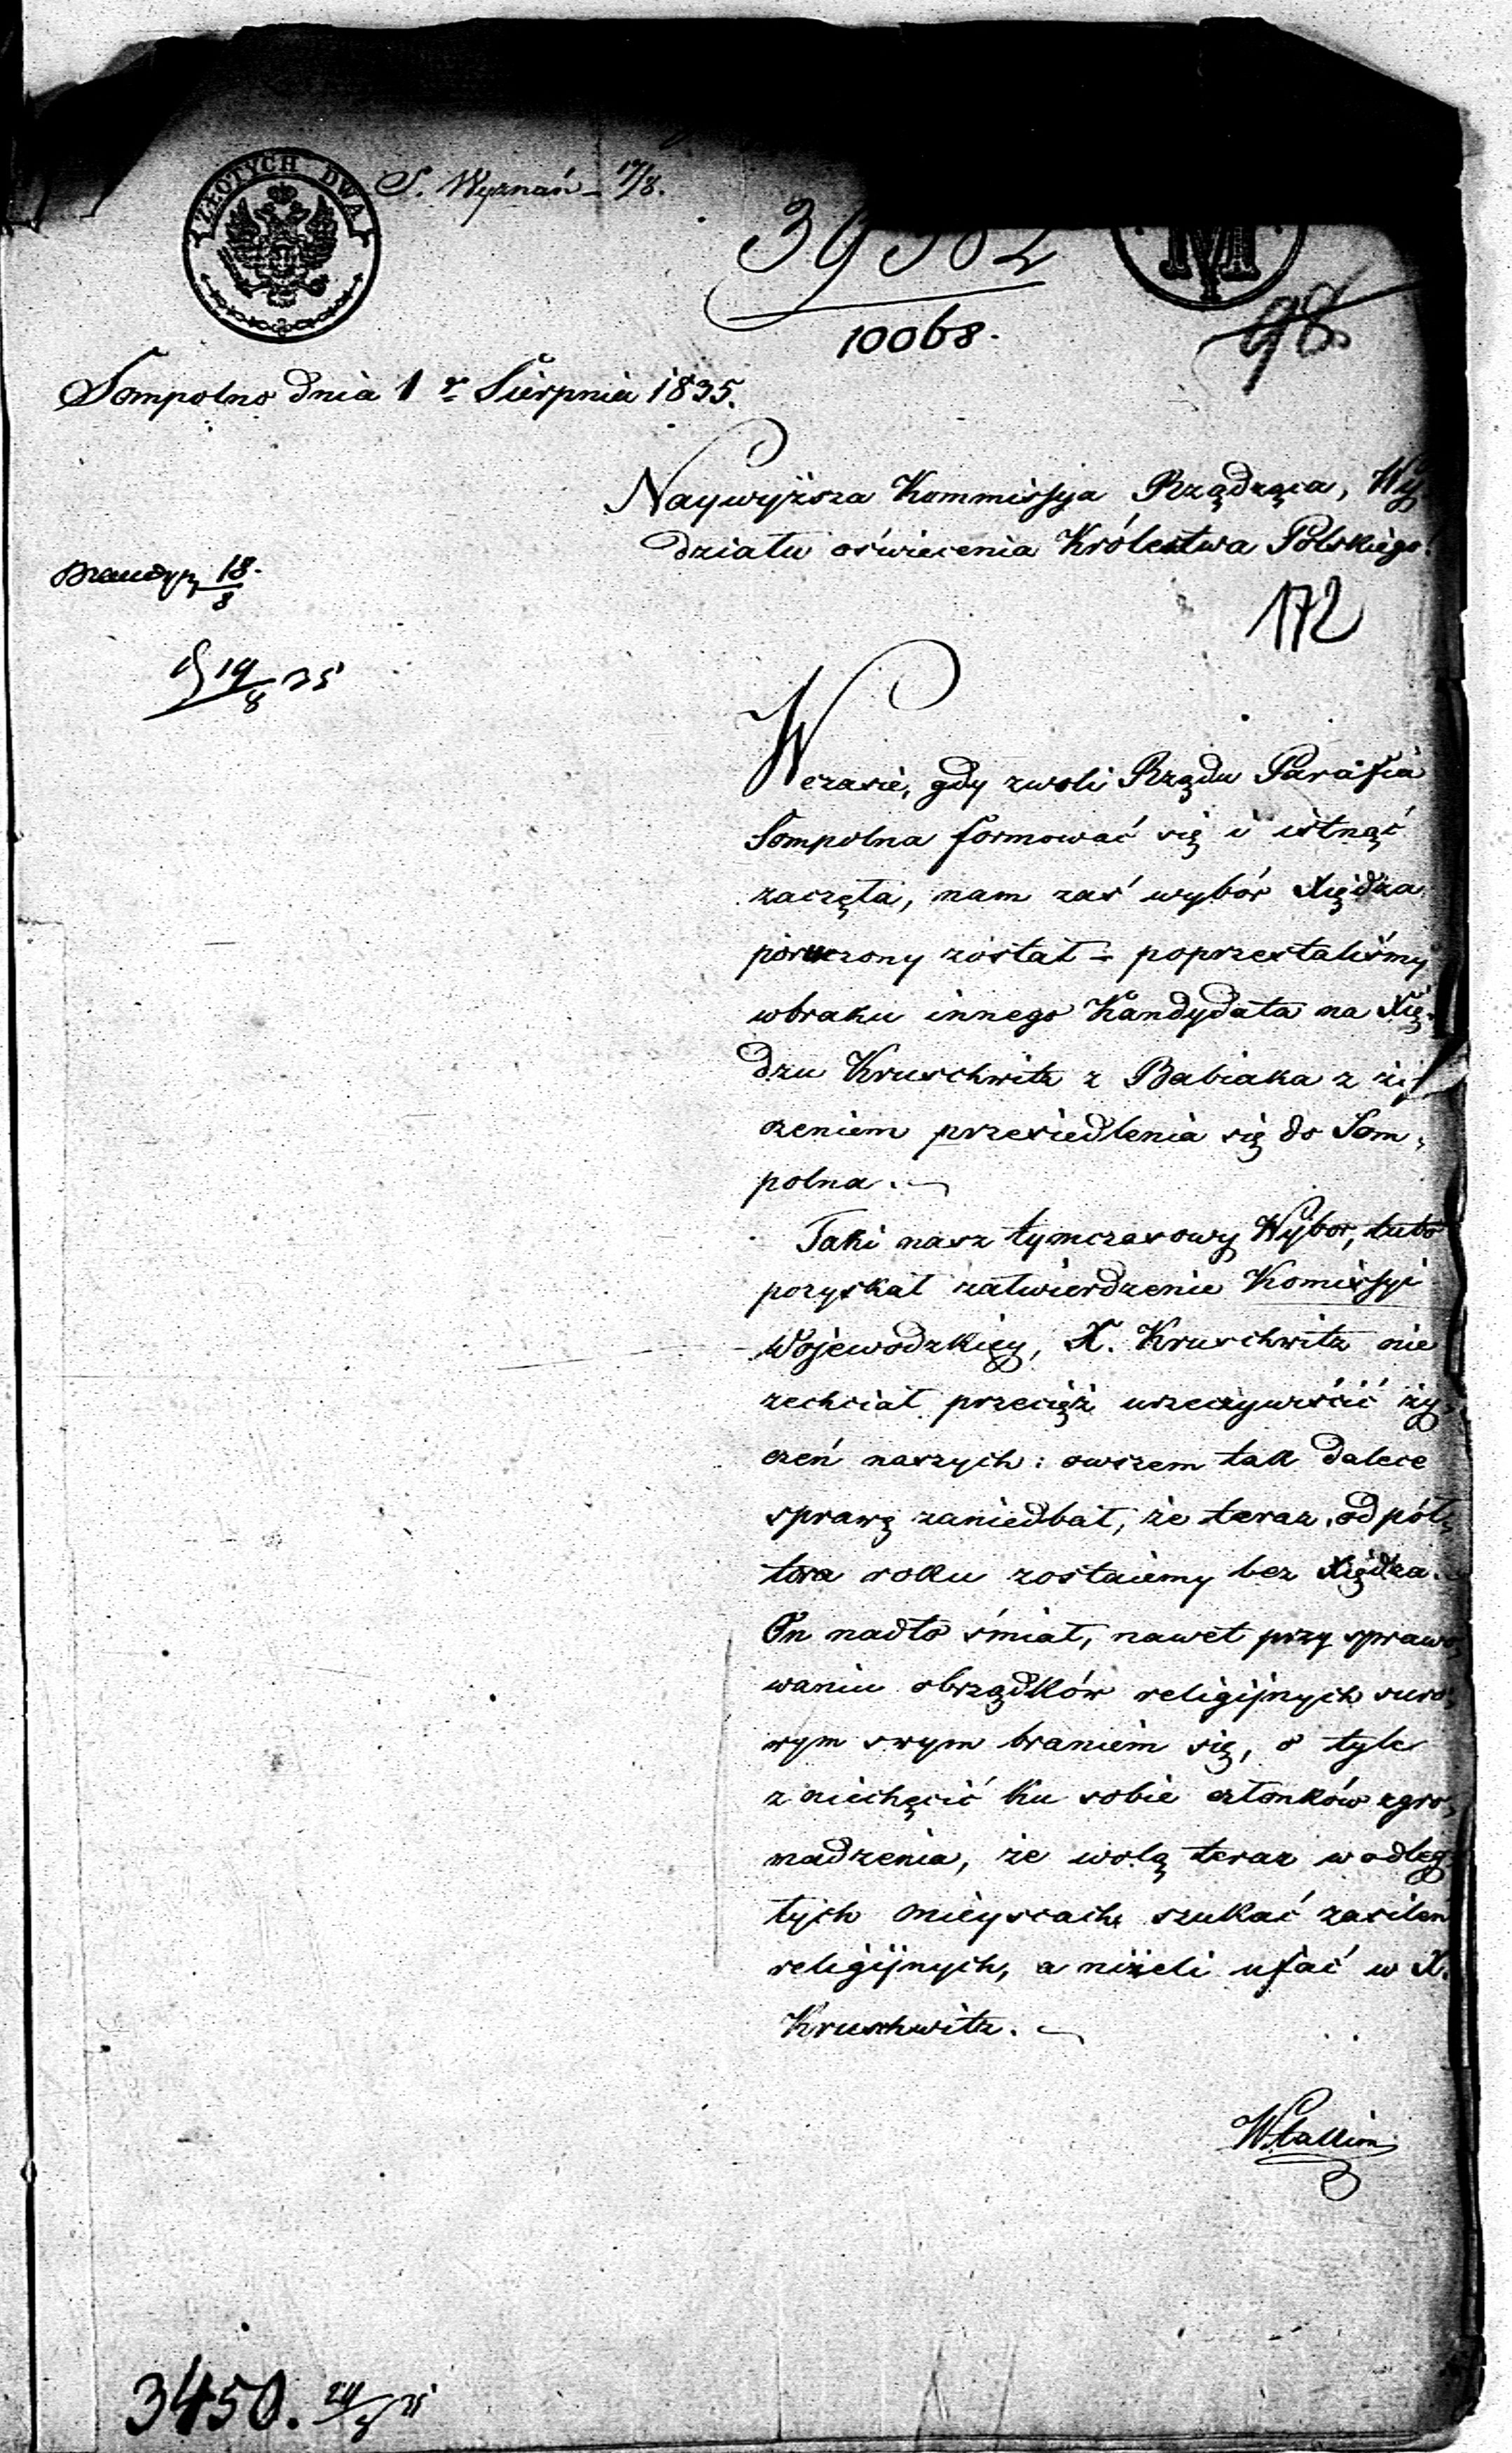 ZŁOTYCH DWA
S. Wyznań - 17/8.
10068.
98
Sompolno dnia 1 Sierpnia 1835.
Naywyższa Kommissya Rządząca, Wy
działu oświecenia Królestwa Polskiego!
18/8
172
19/8 35
W czasie, gdy zwoli Rządu Parafia
Sompolna formować się i istnąć
zaczęła, nam zaś wybór Xiędza
poruczony został – poprzestaliśmy
wbraku innego Kandydata na Xię-
dzu Kruschwitz z Babiaka z ży
czeniem przesiedlenia się do Som,
polna.
Taki nasz tymczasowy Wybor, lubo
pozyskał zatwierdzenie Komissyi
Wojewodzkiey, X. Kruschwitz nie
zechciał przecięż urzeczywiścić ży,
czeń naszych: owszem tak dalece
sprawę zaniedbał, że teraz od pół,
tora roku zostaiemy bez Xiędza.
On nadto śmiał, nawet przy sprawo,
waniu obrządków religijnych suro,
wym swym braniem się, o tyle
zniechęcić ku sobie członków zgro,
madzenia, że wolą teraz w odleg,
łych mieyscach szukać zasileń
religijnych, a niżeli ufać w X.
Kruschwitz.
3450.